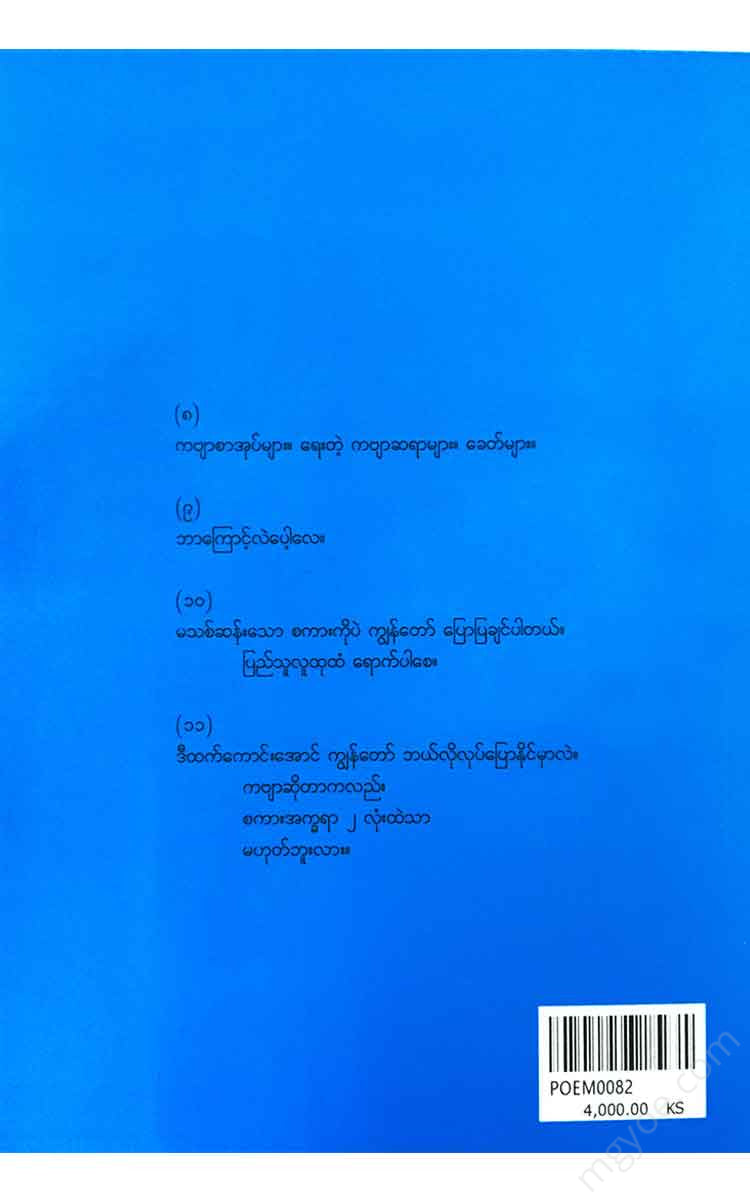 (၈)
ကဗျာစာအုပ်များ။ ရေးတဲ့ ကဗျာဆရာများ။ ခေတ်များ။
(၉)
ဘာကြောင့်လဲပေါ့လေ။
(၁၀)
မသစ်ဆန်းသော စကားကိုပဲ ကျွန်တော် ပြောပြချင်ပါတယ်။
ပြည်သူလူထုထံ ရောက်ပါစေ။
(၁၁)
ဒီထက်ကောင်းအောင် ကျွန်တော် ဘယ်လိုလုပ်ပြောနိုင်မှာလဲ။
ကဗျာဆိုတာကလည်း
စကားအက္ခရာ ၂ လုံးထဲသာ
မဟုတ်ဘူးလား။
POEM0082
4,000.00 KS
mgyoe.com